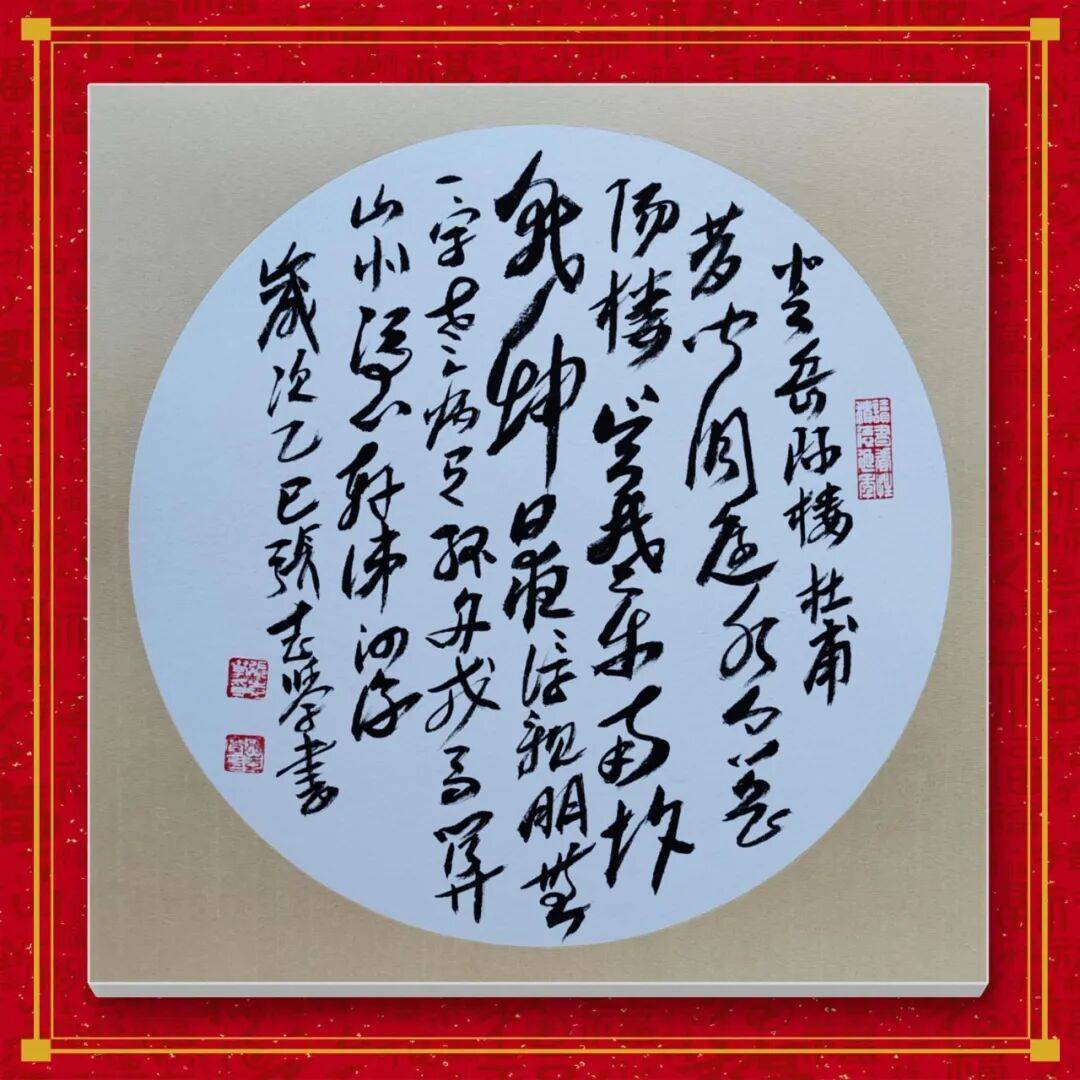 登岳陽楼 杜甫
昔闻洞庭水今上岳
陽楼吴楚东南坼
乾坤日夜浮親朋無
一字老病有孤舟戎马関
山北憑轩涕泗流
歲次乙巳張志學書